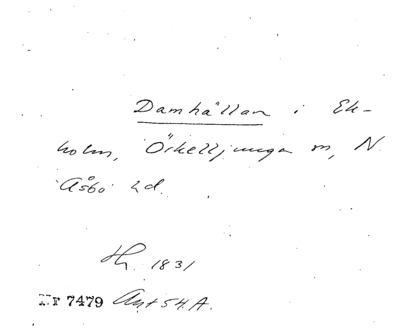 Damhällan i Ek-
holm, Örkelljunga sn, N.
Åsbo hd.
Hr. 1831
Nr 7479 Ant 54.A.